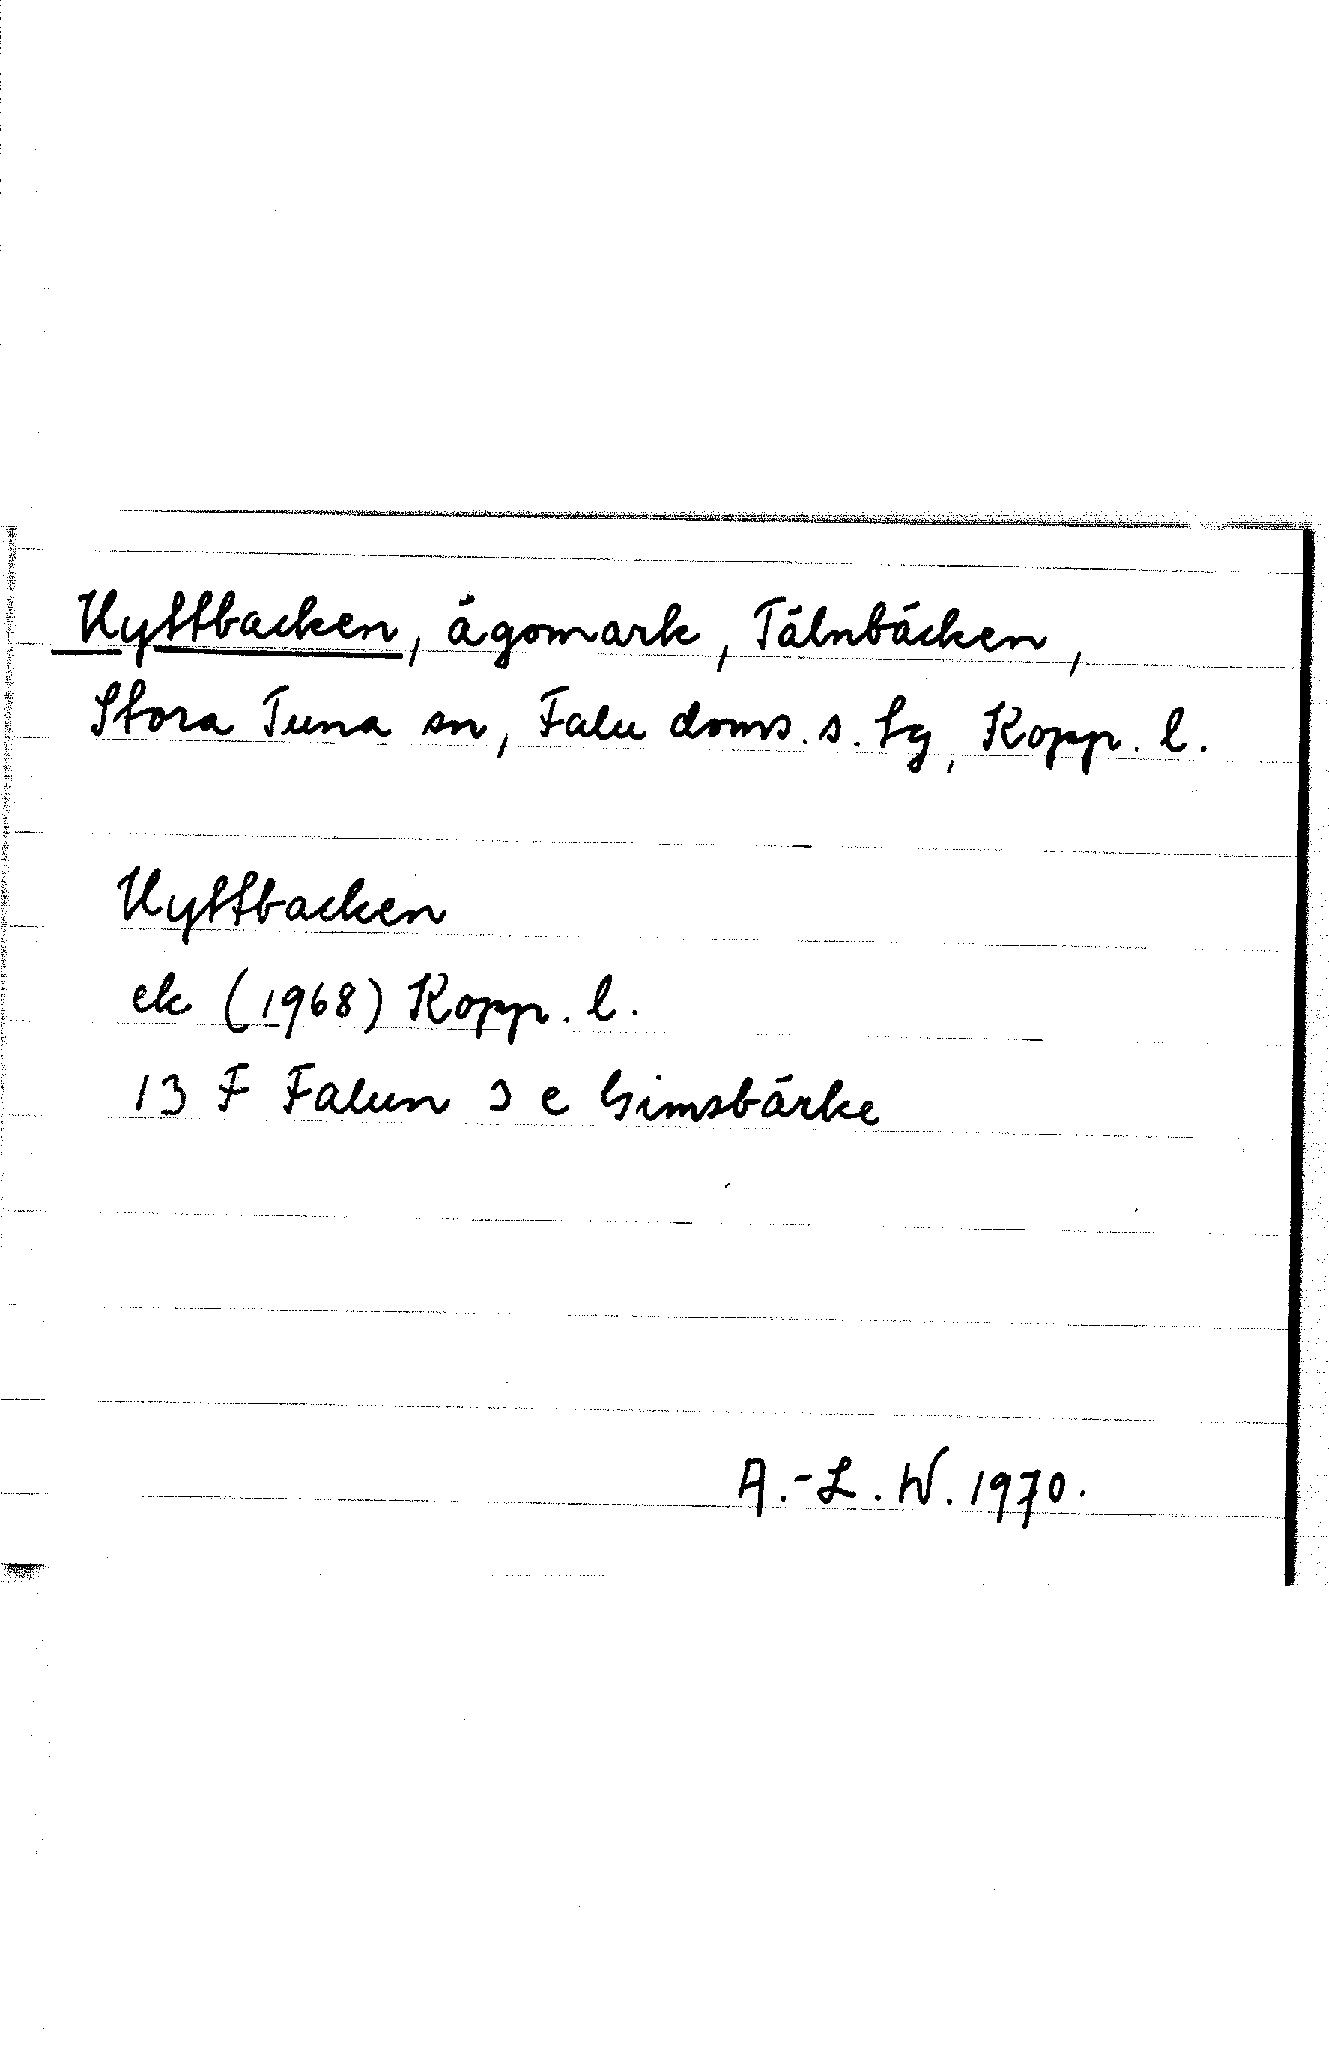 Hyttbacken, ägomark, Tälnbäcken,
Stora Tuna sn, Falu doms. s. tg, Kopp. l.
Hyttbacken
ek (1968) Kopp. l.
13 F Falun 3 e Gimsbärke
A.-L. W. 1970.